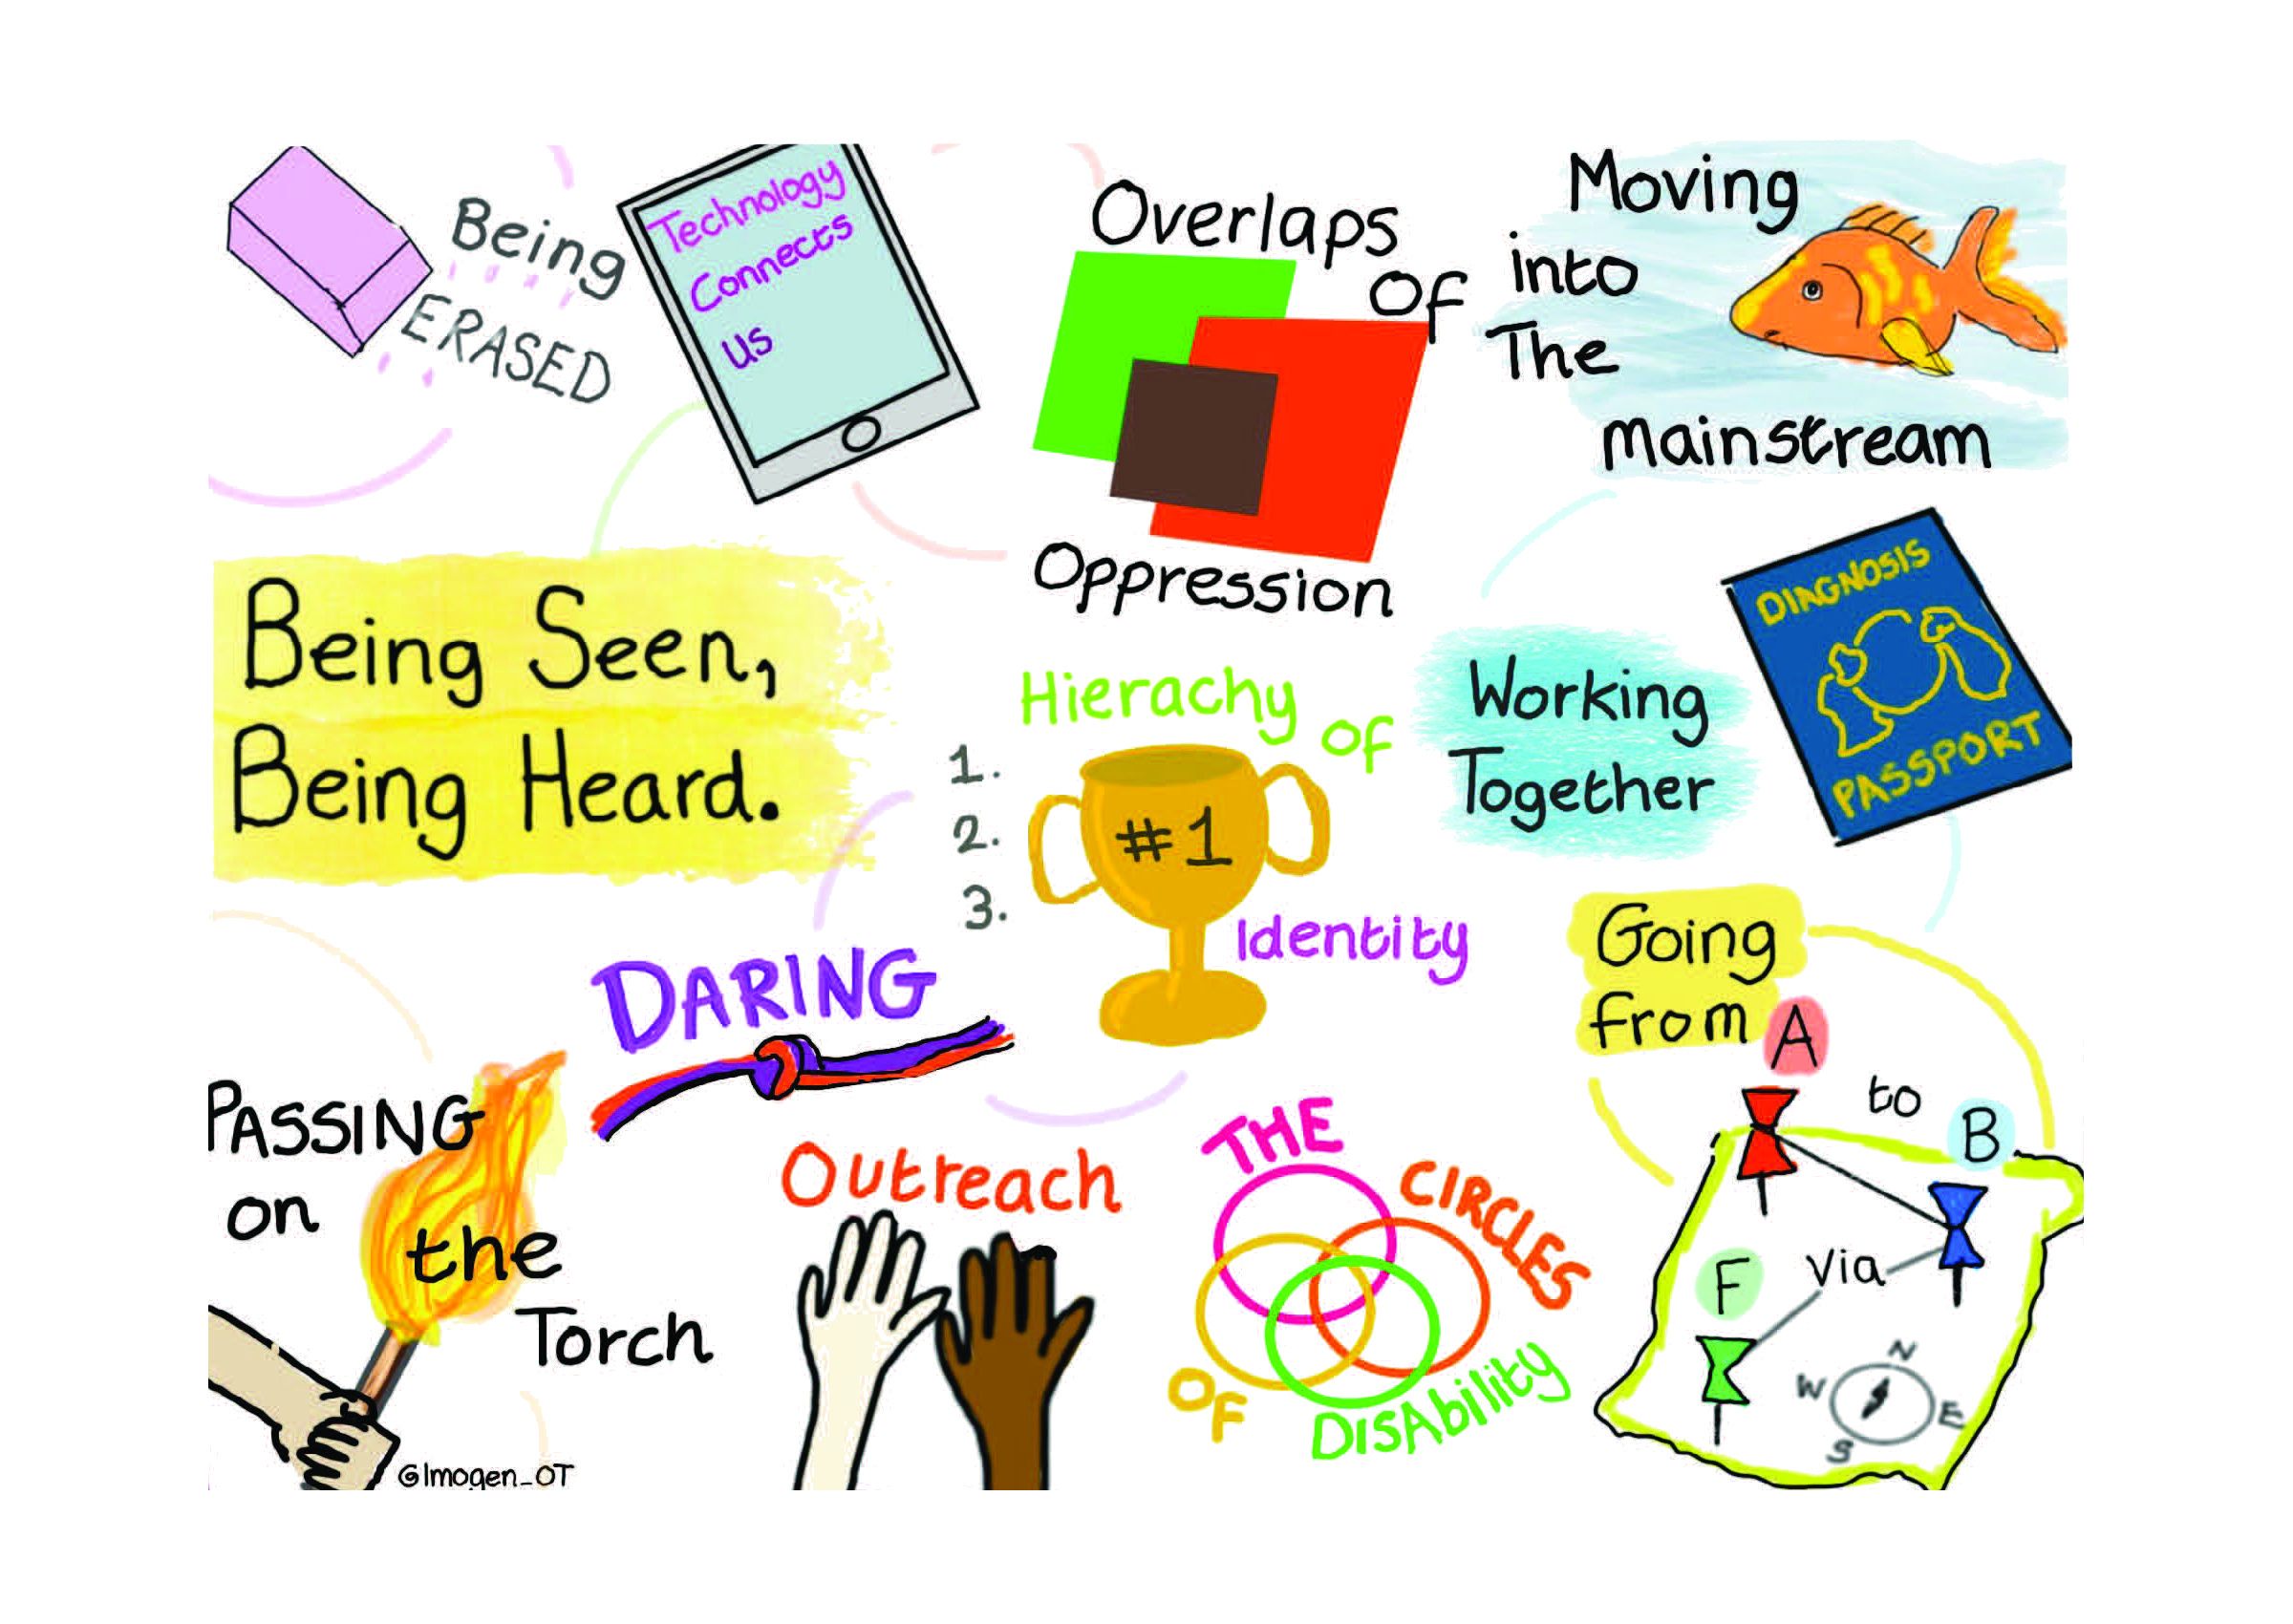 Being
ERASED
Technology
Connects
us
Overlaps
Of
Oppression
Moving
into
The
mainstream
Being Seen,
Being Heard.
Hierachy
of
1.
2.
3.
#1
Identity
Working
Together
DIAGNOSIS
PASSPORT
DARING
Going
from A
to B
Via
F
N
W
E
S
PASSING
on
the
Torch
@Imogen_OT
Outreach
THE
CIRCLES
OF
DISAbility